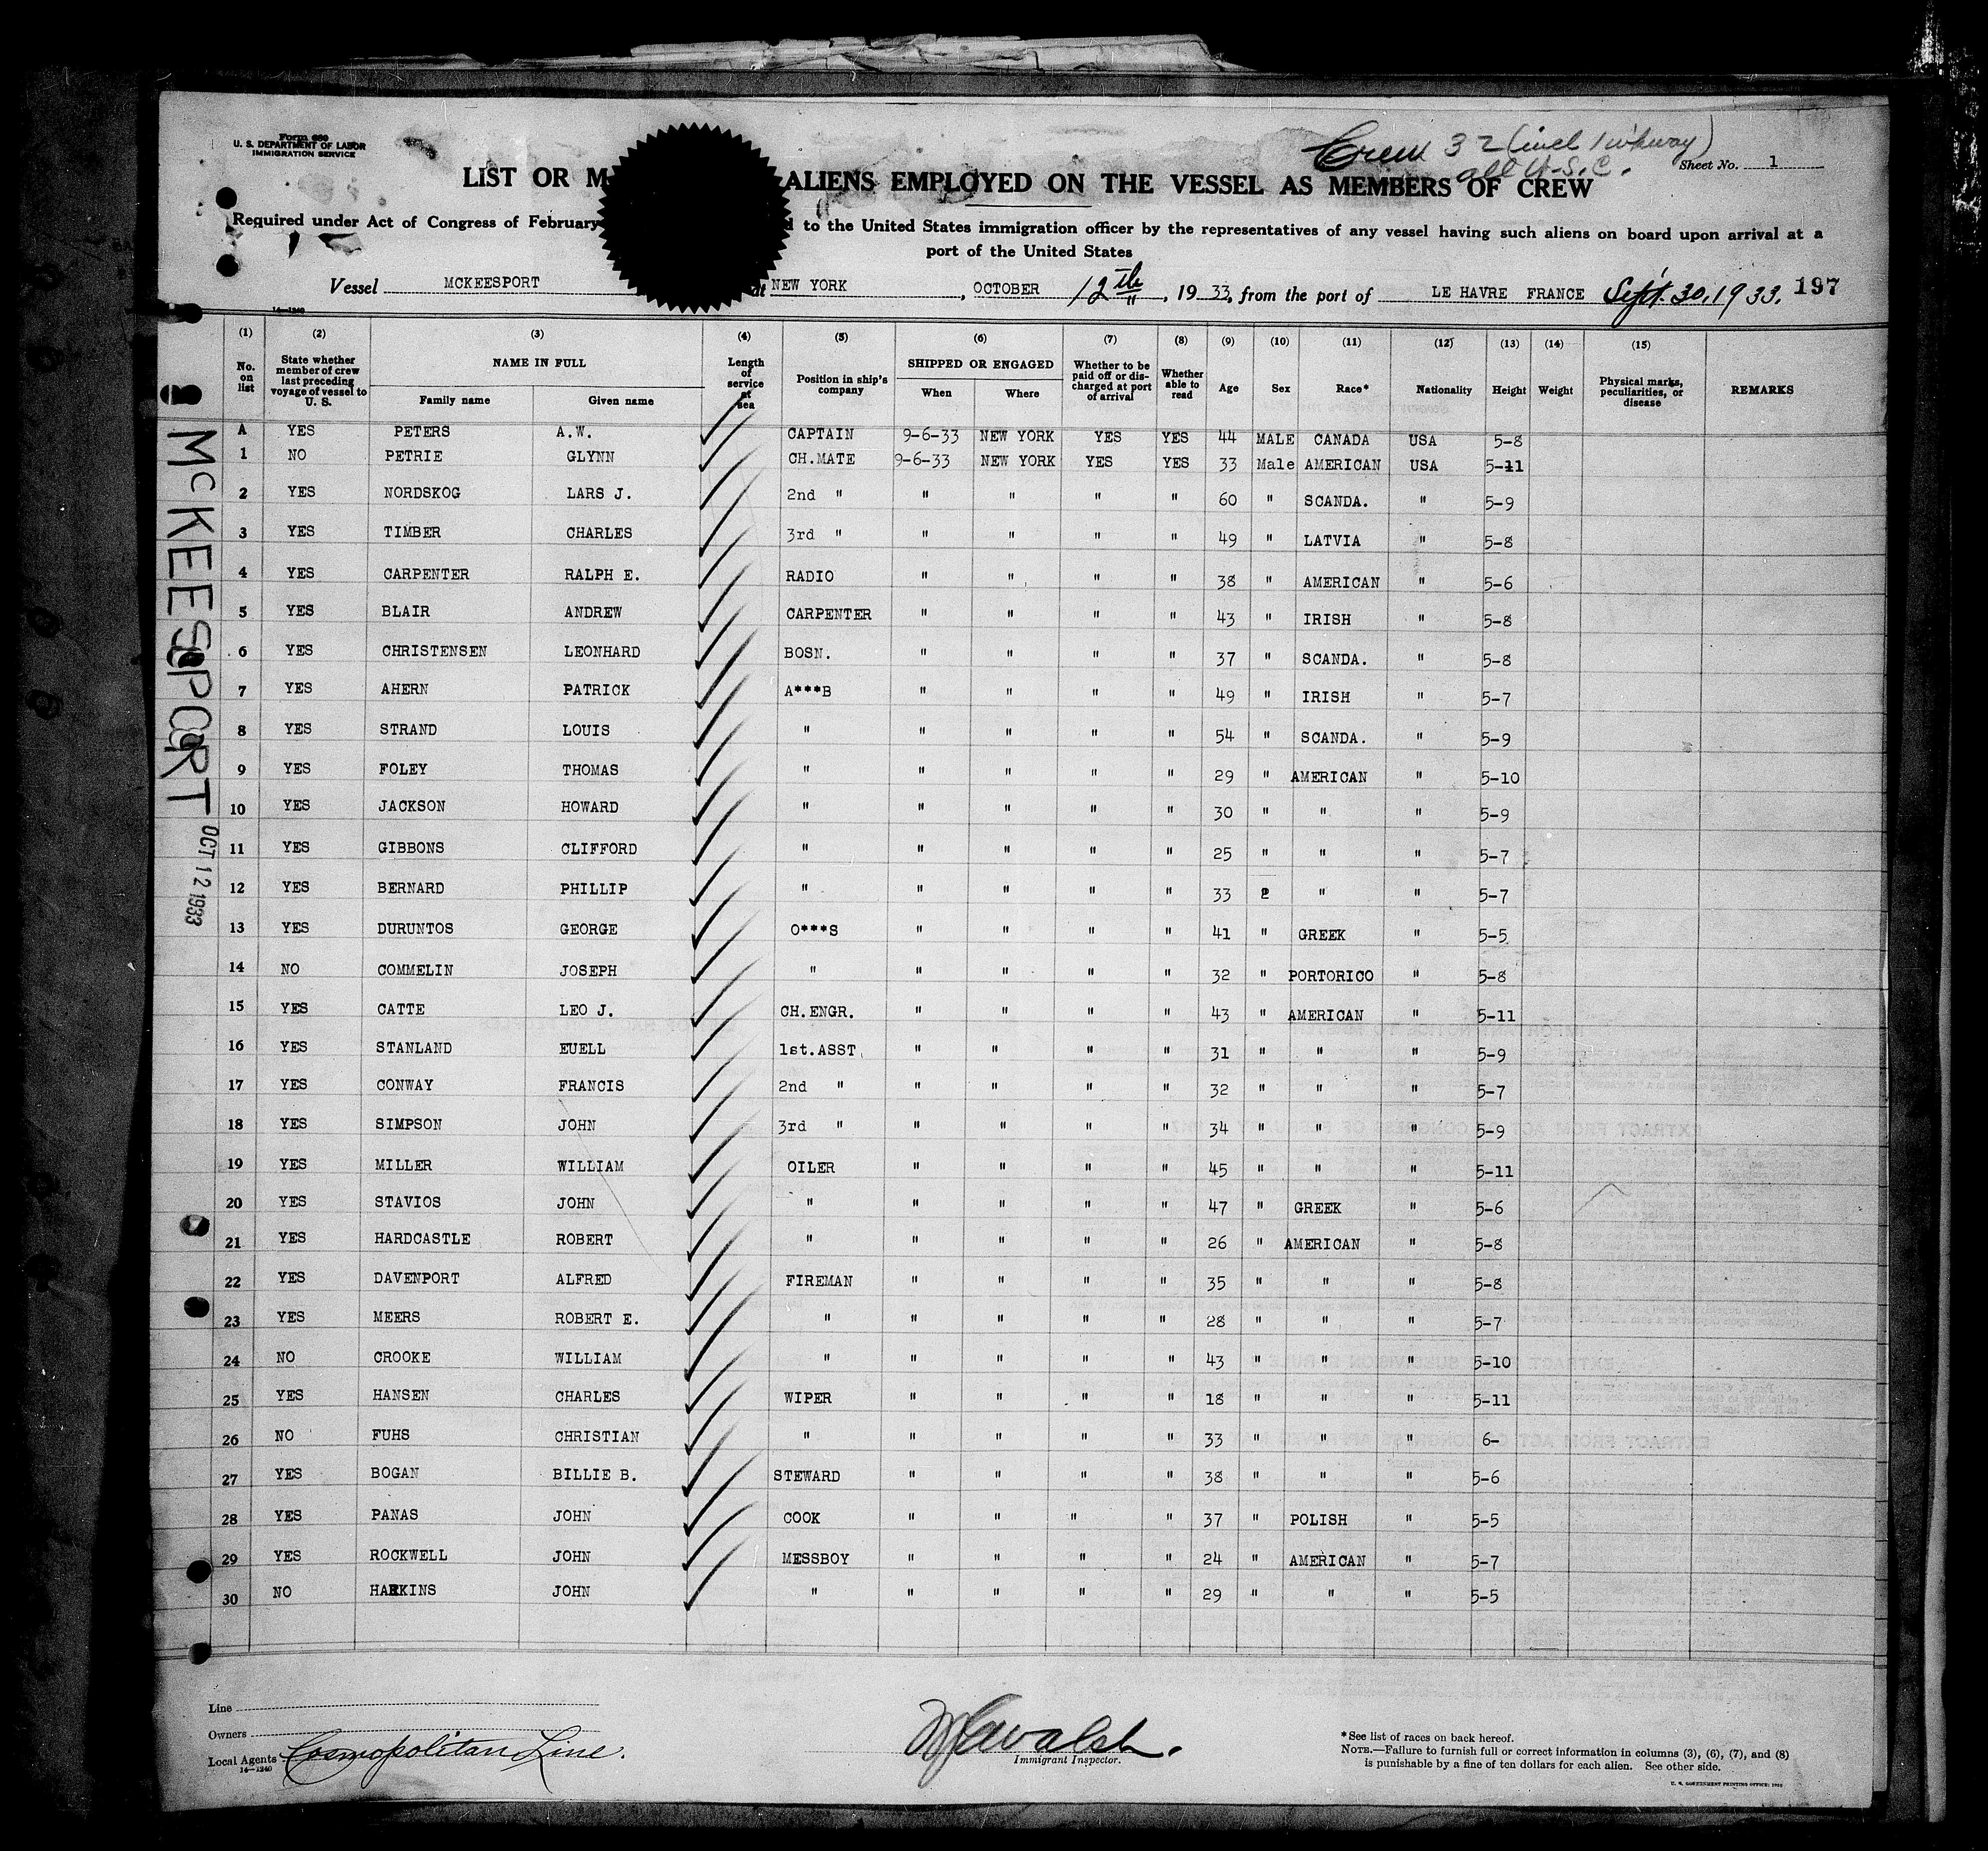 Form 689
U. S. DEPARTMENT OF LABOR
IMMIGRATION SERVICE
Crew 32 (incl 1 w'kway)
all U.S.C.
Sheet No. 1
LIST OR M ALIENS EMPLOYED ON THE VESSEL AS MEMBERS OF CREW
Required under Act of Congress of February d to the United States immigration officer by the representatives of any vessel having such aliens on board upon arrival at a
port of the United States
Vessel MCKEESPORT at NEW YORK, OCTOBER 12th, 1933, from the port of LE HAVRE FRANCE Sept. 30, 1933. 197
14—1240
(1) (2) (3) (4) (5) (6) (7) (8) (9) (10) (11) (12) (13) (14) (15)
No. on list | State whether member of crew last preceding voyage of vessel to U. S. | NAME IN FULL Family name Given name | Length of service at sea | Position in ship's company | SHIPPED OR ENGAGED When Where | Whether to be paid off or discharged at port of arrival | Whether able to read | Age | Sex | Race* | Nationality | Height | Weight | Physical marks, peculiarities, or disease | REMARKS
A YES PETERS A.W. CAPTAIN 9-6-33 NEW YORK YES YES 44 MALE CANADA USA 5-8
1 NO PETRIE GLYNN CH.MATE 9-6-33 NEW YORK YES YES 33 Male AMERICAN USA 5-11
2 YES NORDSKOG LARS J. 2nd " " " " " 60 " SCANDA. " 5-9
3 YES TIMBER CHARLES 3rd " " " " " 49 " LATVIA " 5-8
4 YES CARPENTER RALPH E. RADIO " " " " 38 " AMERICAN " 5-6
5 YES BLAIR ANDREW CARPENTER " " " " 43 " IRISH " 5-8
6 YES CHRISTENSEN LEONHARD BOSN. " " " " 37 " SCANDA. " 5-8
7 YES AHERN PATRICK A***B " " " " 49 " IRISH " 5-7
8 YES STRAND LOUIS " " " " " 54 " SCANDA. " 5-9
9 YES FOLEY THOMAS " " " " " 29 " AMERICAN " 5-10
10 YES JACKSON HOWARD " " " " " 30 " " " 5-9
11 YES GIBBONS CLIFFORD " " " " " 25 " " " 5-7
12 YES BERNARD PHILLIP " " " " " 33 2 " " 5-7
13 YES DURUNTOS GEORGE O***S " " " " 41 " GREEK " 5-5
14 NO COMMELIN JOSEPH " " " " " 32 " PORTORICO " 5-8
15 YES CATTE LEO J. CH.ENGR. " " " " 43 " AMERICAN " 5-11
16 YES STANLAND EUELL 1st.ASST. " " " " 31 " " " 5-9
17 YES CONWAY FRANCIS 2nd " " " " " 32 " " " 5-7
18 YES SIMPSON JOHN 3rd " " " " " 34 " " " 5-9
19 YES MILLER WILLIAM OILER " " " " 45 " " " 5-11
20 YES STAVIOS JOHN " " " " " 47 " GREEK " 5-6
21 YES HARDCASTLE ROBERT " " " " " 26 " AMERICAN " 5-8
22 YES DAVENPORT ALFRED FIREMAN " " " " 35 " " " 5-8
23 YES MEERS ROBERT E. " " " " " 28 " " " 5-7
24 NO CROOKE WILLIAM " " " " " 43 " " " 5-10
25 YES HANSEN CHARLES WIPER " " " " 18 " " " 5-11
26 NO FUHS CHRISTIAN " " " " " 33 " " " 6-
27 YES BOGAN BILLIE B. STEWARD " " " " 38 " " " 5-6
28 YES PANAS JOHN COOK " " " " 37 " POLISH " 5-5
29 YES ROCKWELL JOHN MESSBOY " " " " 24 " AMERICAN " 5-7
30 NO HARKINS JOHN " " " " " 29 " " " 5-5
MCKEESPORT
OCT 12 1933
Line
Owners
Local Agents Cosmopolitan Line.
14—1240
Walsh.
Immigrant Inspector.
*See list of races on back hereof.
NOTE.—Failure to furnish full or correct information in columns (3), (6), (7), and (8)
is punishable by a fine of ten dollars for each alien. See other side.
U. S. GOVERNMENT PRINTING OFFICE: